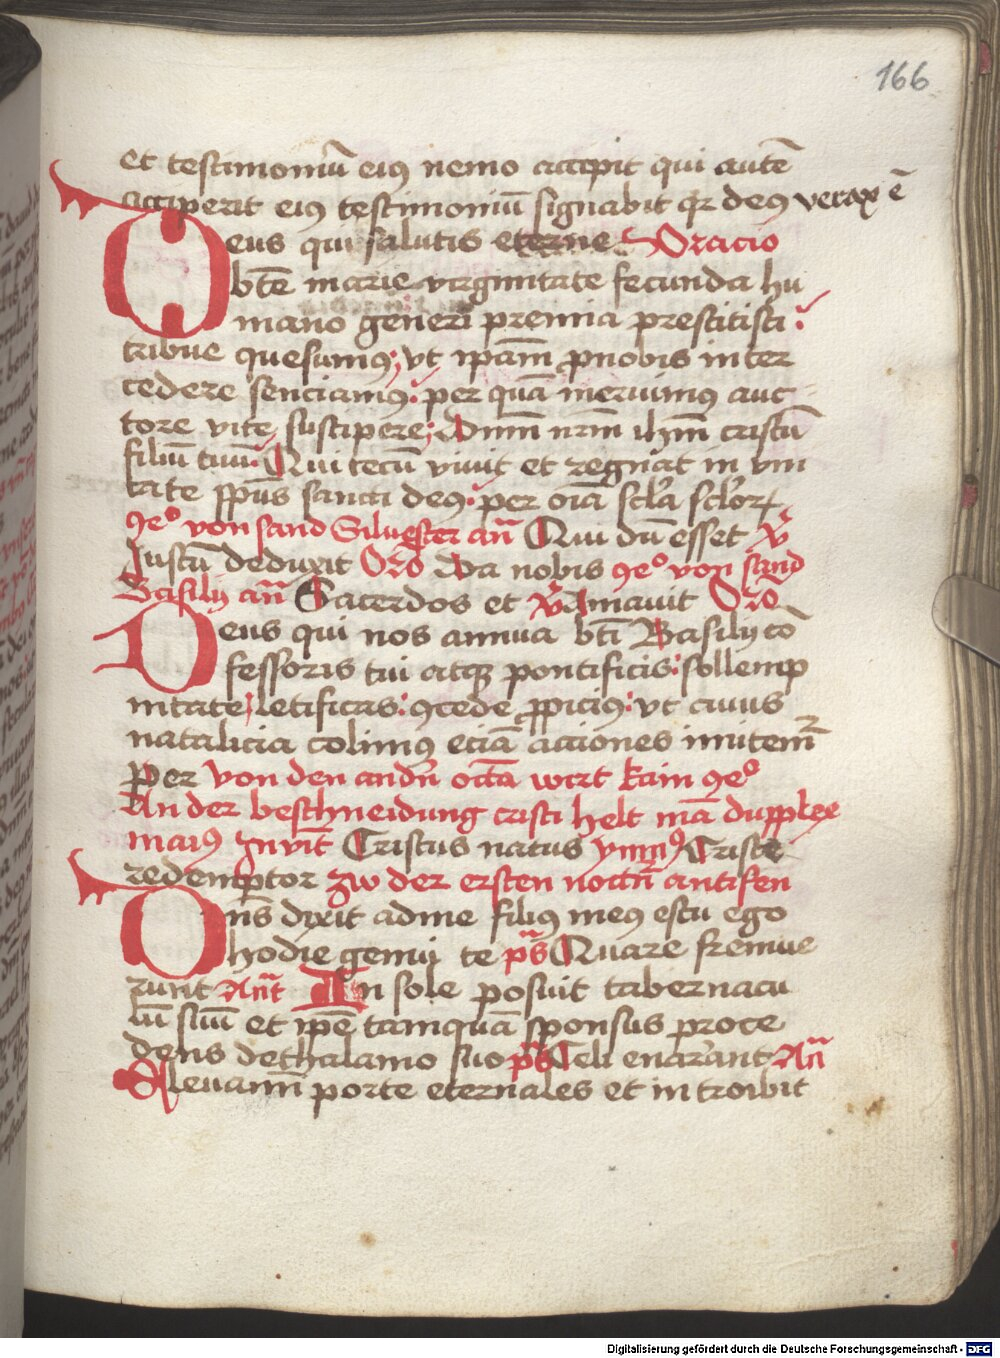 166
et testimoniū eiꝰ nemo accipit qui autē
acciperit eiꝰ testimoniū signabit qr deꝰ verax ē
Deus qui salutis eterne Oracio
btē marie virginitate fecunda hu
mano generi premia prestitisti:
tribue quesumꝰ; vt ipam̄ ꝓnobis inter
cedere senciamꝰ: per quā meruimꝰ auc
tore vite suscipere; dnm̄ nrm̄ ihm̄ cristū
filiū tuū. Qui tecū viuit et regnat in vni
tate spūs sancti deꝰ: per oīa scl̄a scl̄oꝝ
ꝯeº von sand Siluester an̄ Qui dū esset v̄
Justū deduxit Or̄o Da nobis ꝯeº von sand
Basilij an̄ Sacerdos et v̄ Amauit Or̄o
Deus qui nos annua bt̄i Basilij cō
fessoris tui atqꝫ pontificis: sollemp
nitate, letificas: ꝯcede ꝓpiciꝰ: vt cuius
natalicia colimꝰ eciā acciones imitem̄
Per von den andn̄ octā wirt kain ꝯeº
An der beschneidung cristi helt mā dupplex
maiꝰ Inuīt Cristus natus ymnꝰ Criste
redemptor zw der ersten noctn̄ antifen
Dn̄s dixit adme filiꝰ meꝰ estu ego
hodie genui te ps̄ Quare fremue
runt An̄t In sole posuit tabernacu
lū suū et ip̄e tamquā sponsus proce
dens dethalamo suo ps̄ Celi enarrant An̄
Eleuamī porte eternales et introibit
Digitalisierung gefördert durch die Deutsche Forschungsgemeinschaft - DFG